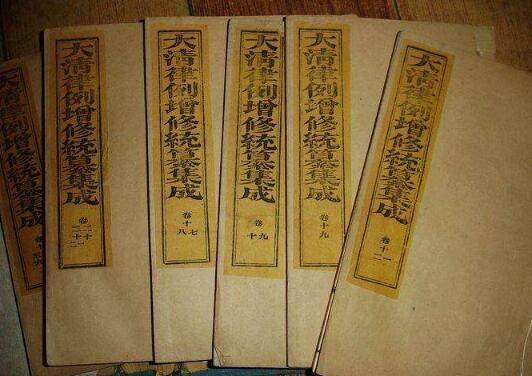 大清律例增修統纂集成
卷十一二
大清律例增修統纂集成
卷十九
大清律例增修統纂集成
卷九十
大清律例增修統纂集成
卷十七八
大清律例增修統纂集成
大清律例增修統纂集成